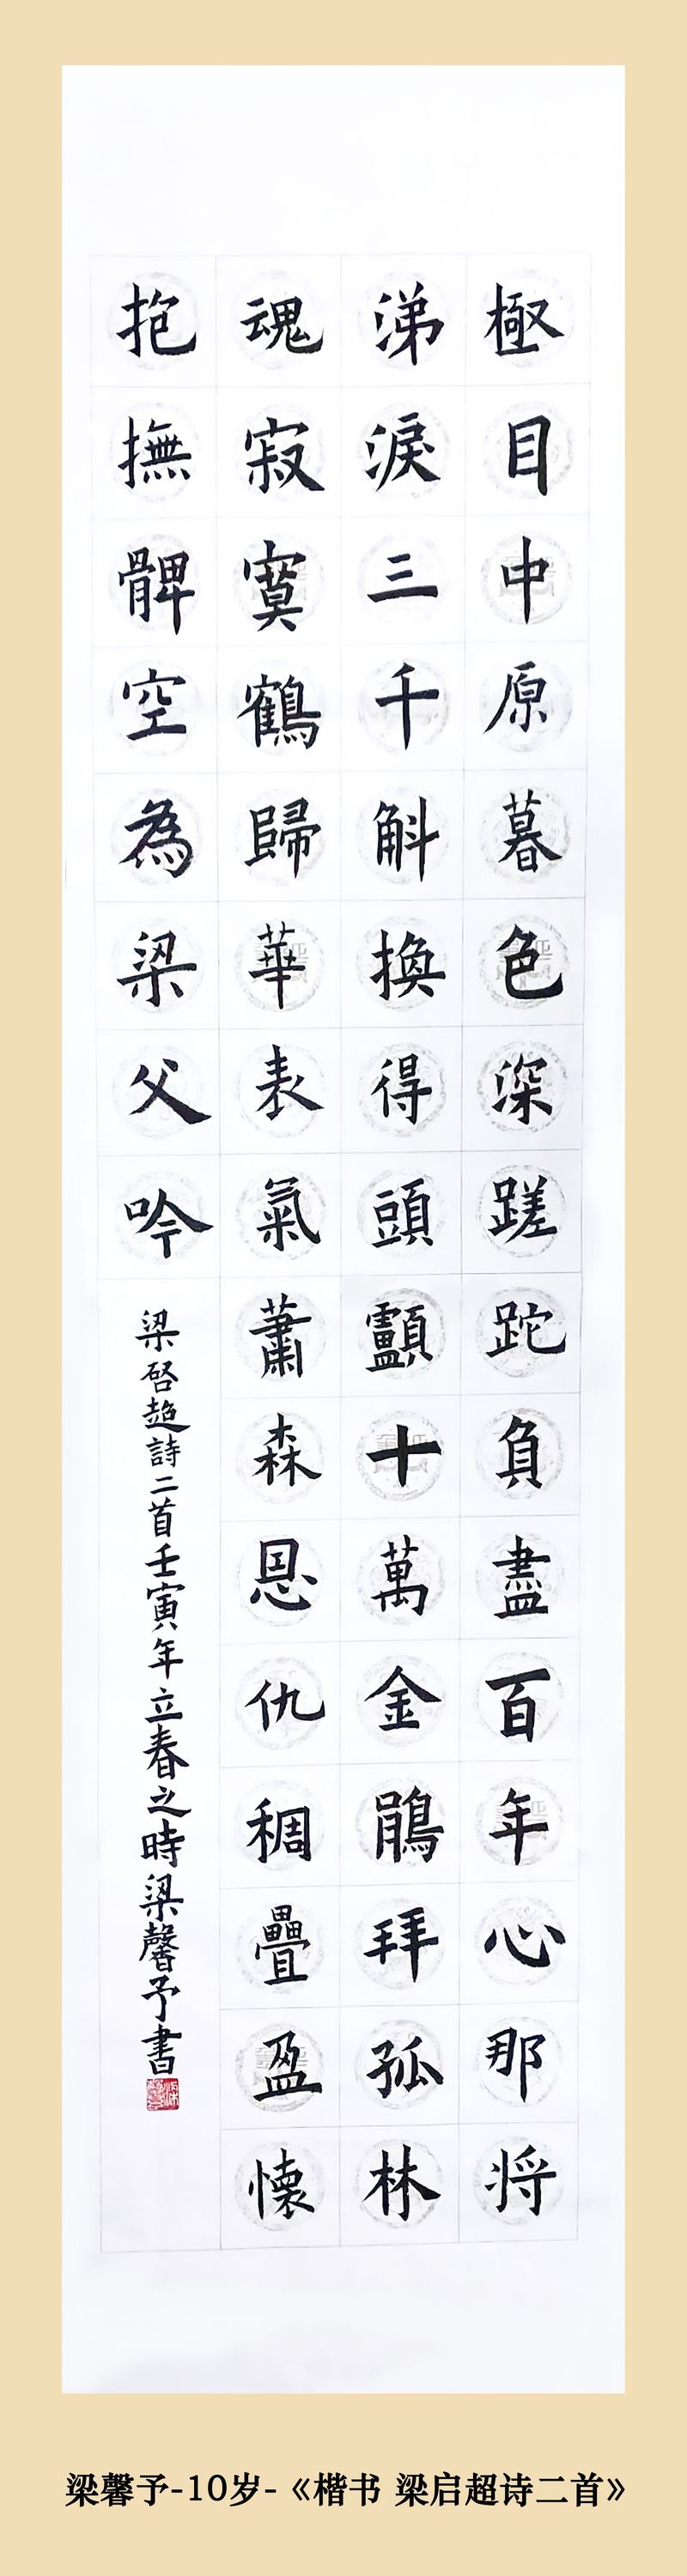 極目中原暮色深蹉跎負盡百年心那将
涕淚三千斛換得頭顱十萬金鵑拜孤林
魂寂寞鶴歸華表氣蕭森恩仇稠疊盈懷
抱撫髀空為梁父吟
梁啓超詩二首壬寅年立春之時梁馨予書
梁馨予-10岁-《楷书 梁启超诗二首》